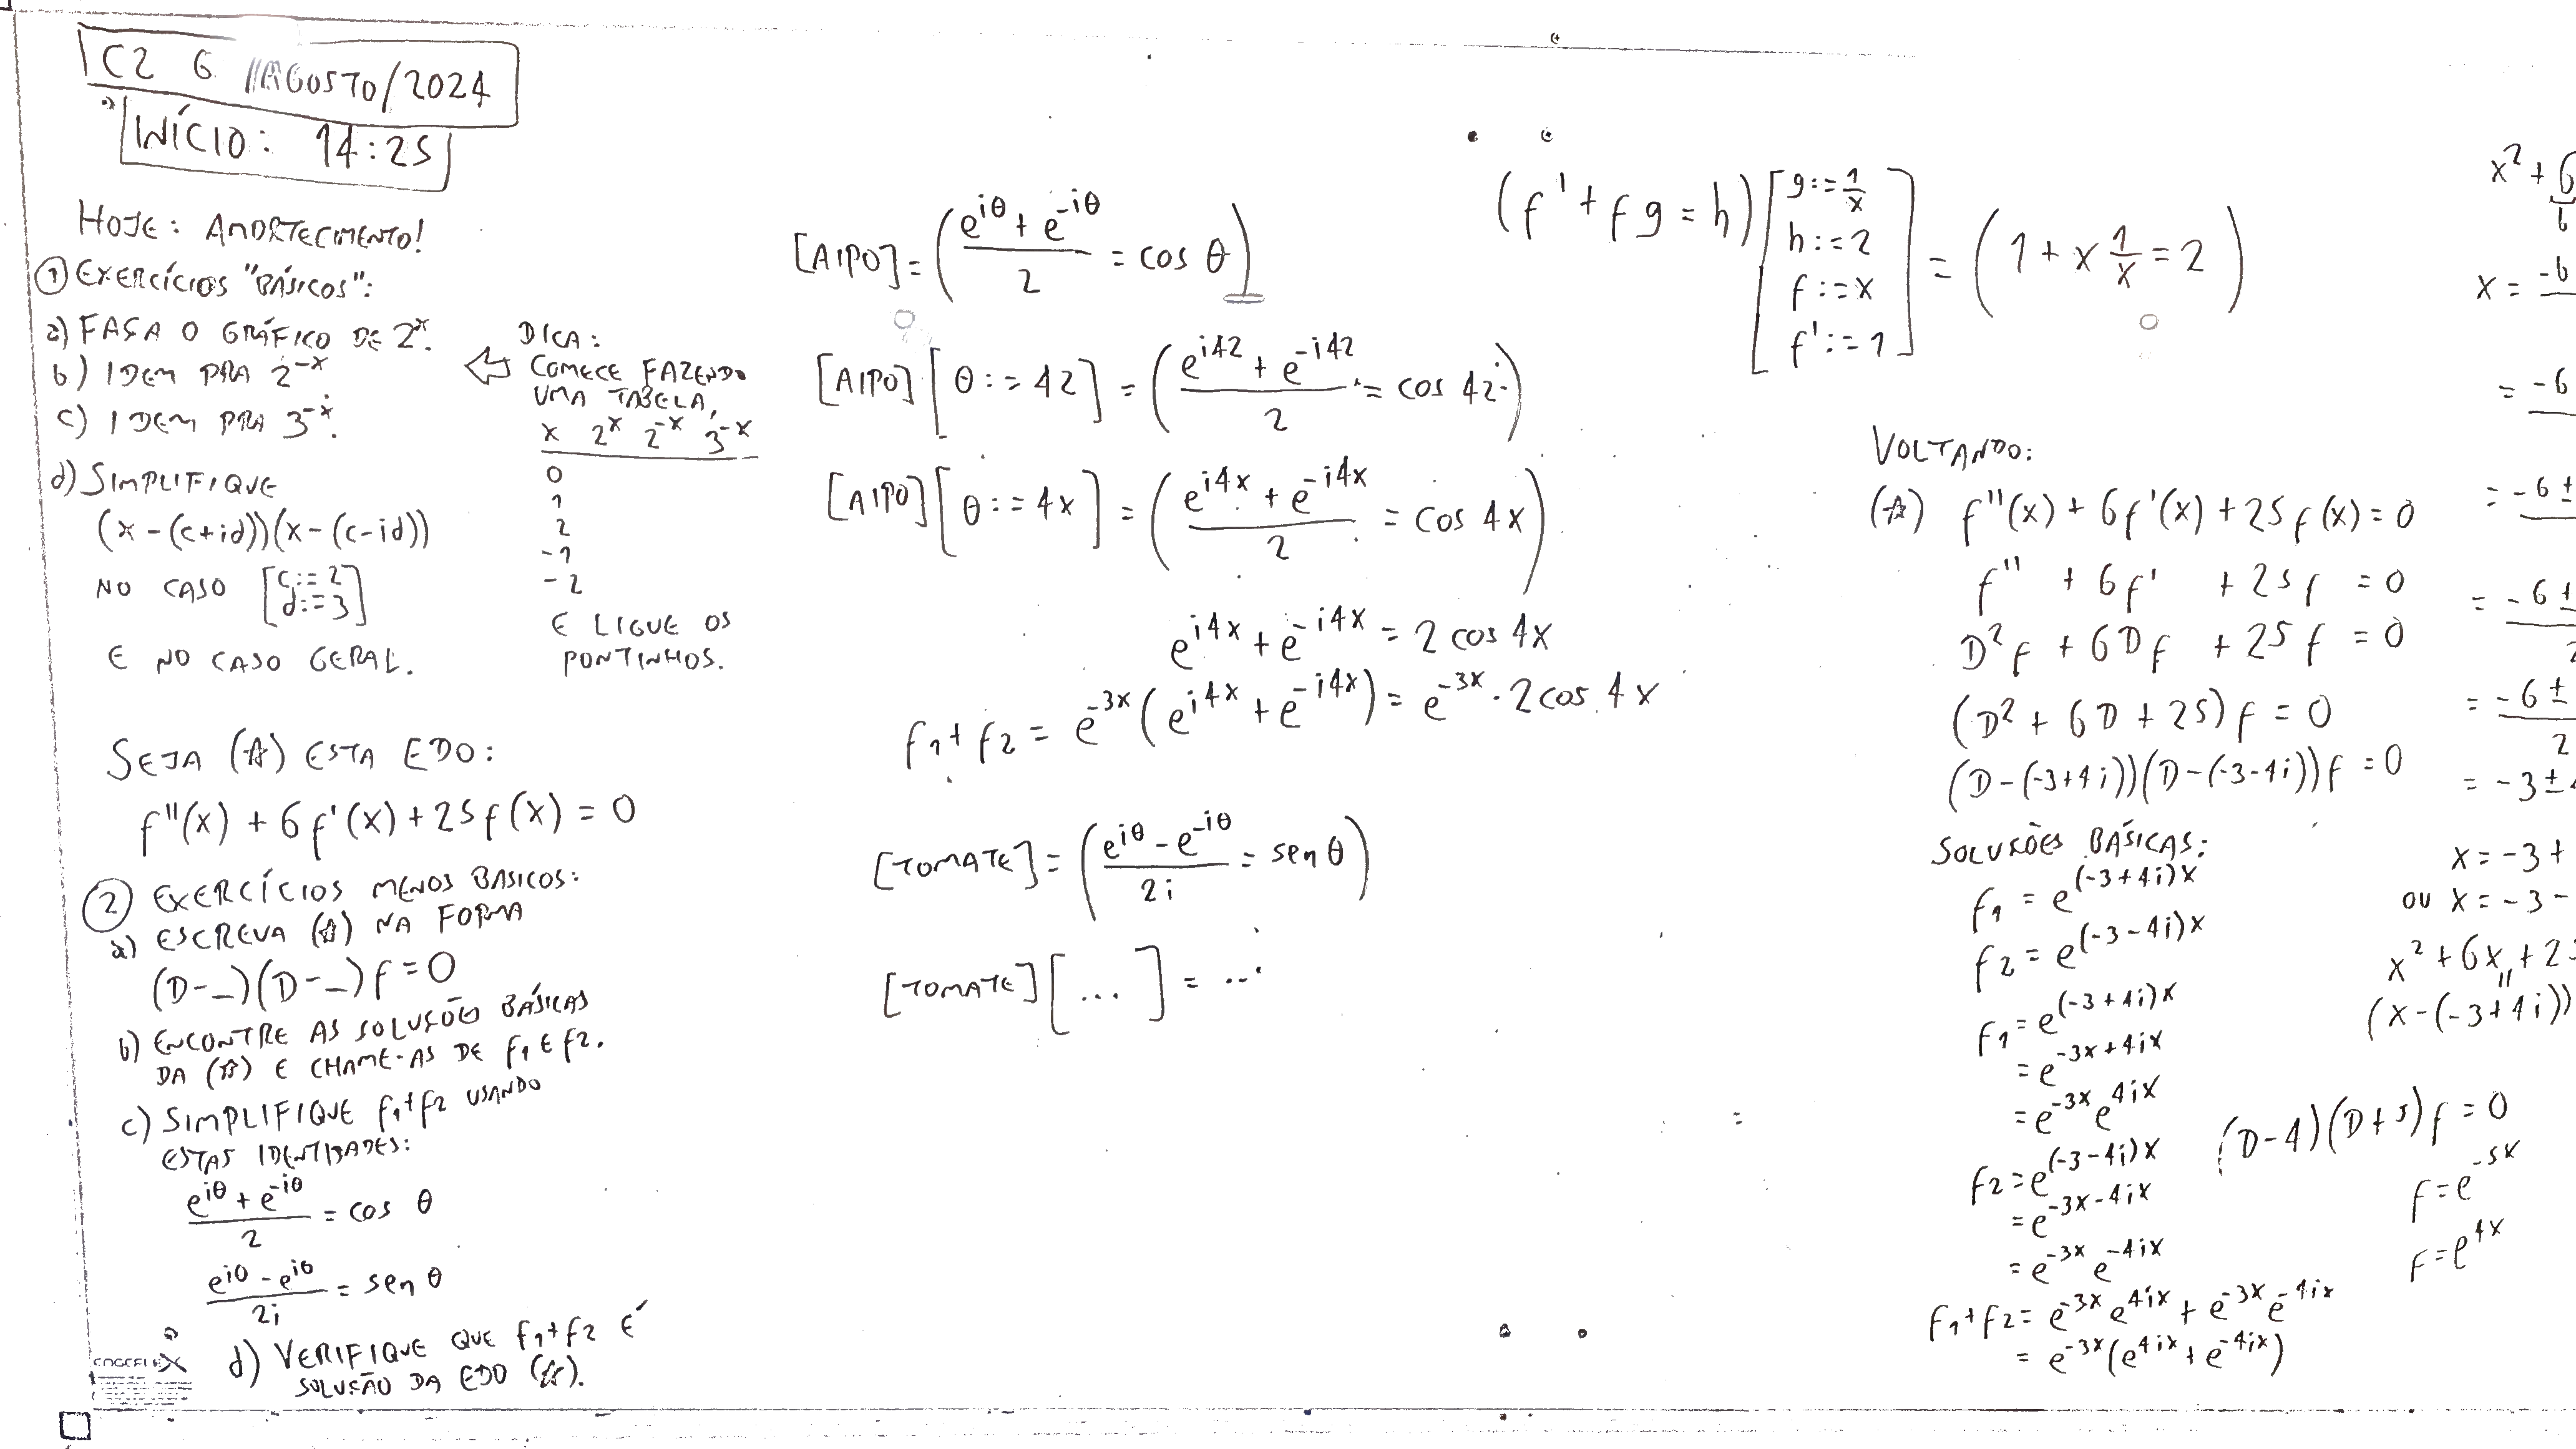 C2 6 /AGOSTO/2024
INÍCIO: 14:25
HOJE: AMORTECIMENTO!
① EXERCÍCIOS "BÁSICOS":
a) FAÇA O GRÁFICO DE 2^x.
b) IDEM PRA 2^-x
c) IDEM PRA 3^-x.
d) SIMPLIFIQUE
(x-(c+id))(x-(c-id))
NO CASO [c:=2
d:=3]
E NO CASO GERAL.
DICA:
COMECE FAZENDO
UMA TABELA,
x 2^x 2^-x 3^-x
0
1
2
-1
-2
E LIGUE OS
PONTINHOS.
SEJA (☆) ESTA EDO:
f''(x) + 6f'(x) + 25f(x) = 0
② EXERCÍCIOS MENOS BASICOS:
a) ESCREVA (☆) NA FORMA
(D-_)(D-_)f=0
b) ENCONTRE AS SOLUÇÕES BÁSICAS
DA (☆) E CHAME-AS DE f1 E f2.
c) SIMPLIFIQUE f1+f2 USANDO
ESTAS IDENTIDADES:
(e^iθ + e^-iθ)/2 = cos θ
(e^iθ - e^iθ)/2i = sen θ
d) VERIFIQUE QUE f1+f2 É
SOLUÇÃO DA EDO (☆).
[AIPO] = ((e^iθ + e^-iθ)/2 = cos θ)
[AIPO][θ:=42] = ((e^i42 + e^-i42)/2 = cos 42)
[AIPO][θ:=4x] = ((e^i4x + e^-i4x)/2 = cos 4x)
e^i4x + e^-i4x = 2 cos 4x
f1+f2 = e^-3x (e^i4x + e^-i4x) = e^-3x · 2 cos 4x
[TOMATE] = ((e^iθ - e^-iθ)/2i = sen θ)
[TOMATE][...] = ...
(f' + fg = h)[g:=1/x
h:=2
f:=x
f':=1] = (1 + x 1/x = 2)
VOLTANDO:
(☆) f''(x) + 6f'(x) + 25f(x) = 0
f'' + 6f' + 25f = 0
D²f + 6Df + 25f = 0
(D² + 6D + 25)f = 0
(D-(-3+4i))(D-(-3-4i))f = 0
SOLUÇÕES BÁSICAS:
f1 = e^(-3+4i)x
f2 = e^(-3-4i)x
f1 = e^(-3+4i)x
= e^-3x+4ix
= e^-3x e^4ix
f2 = e^(-3-4i)x
= e^-3x-4ix
= e^-3x e^-4ix
f1+f2 = e^-3x e^4ix + e^-3x e^-4ix
= e^-3x (e^4ix + e^-4ix)
x² + 6
x = -6
= -6
= -6 ±
= -6 ±
= -6 ±
2
= -3 ±
x = -3 +
ou x = -3 -
x² + 6x + 2
"
(x-(-3+4i))
(D-4)(D+5)f = 0
f = e^-5x
f = e^4x